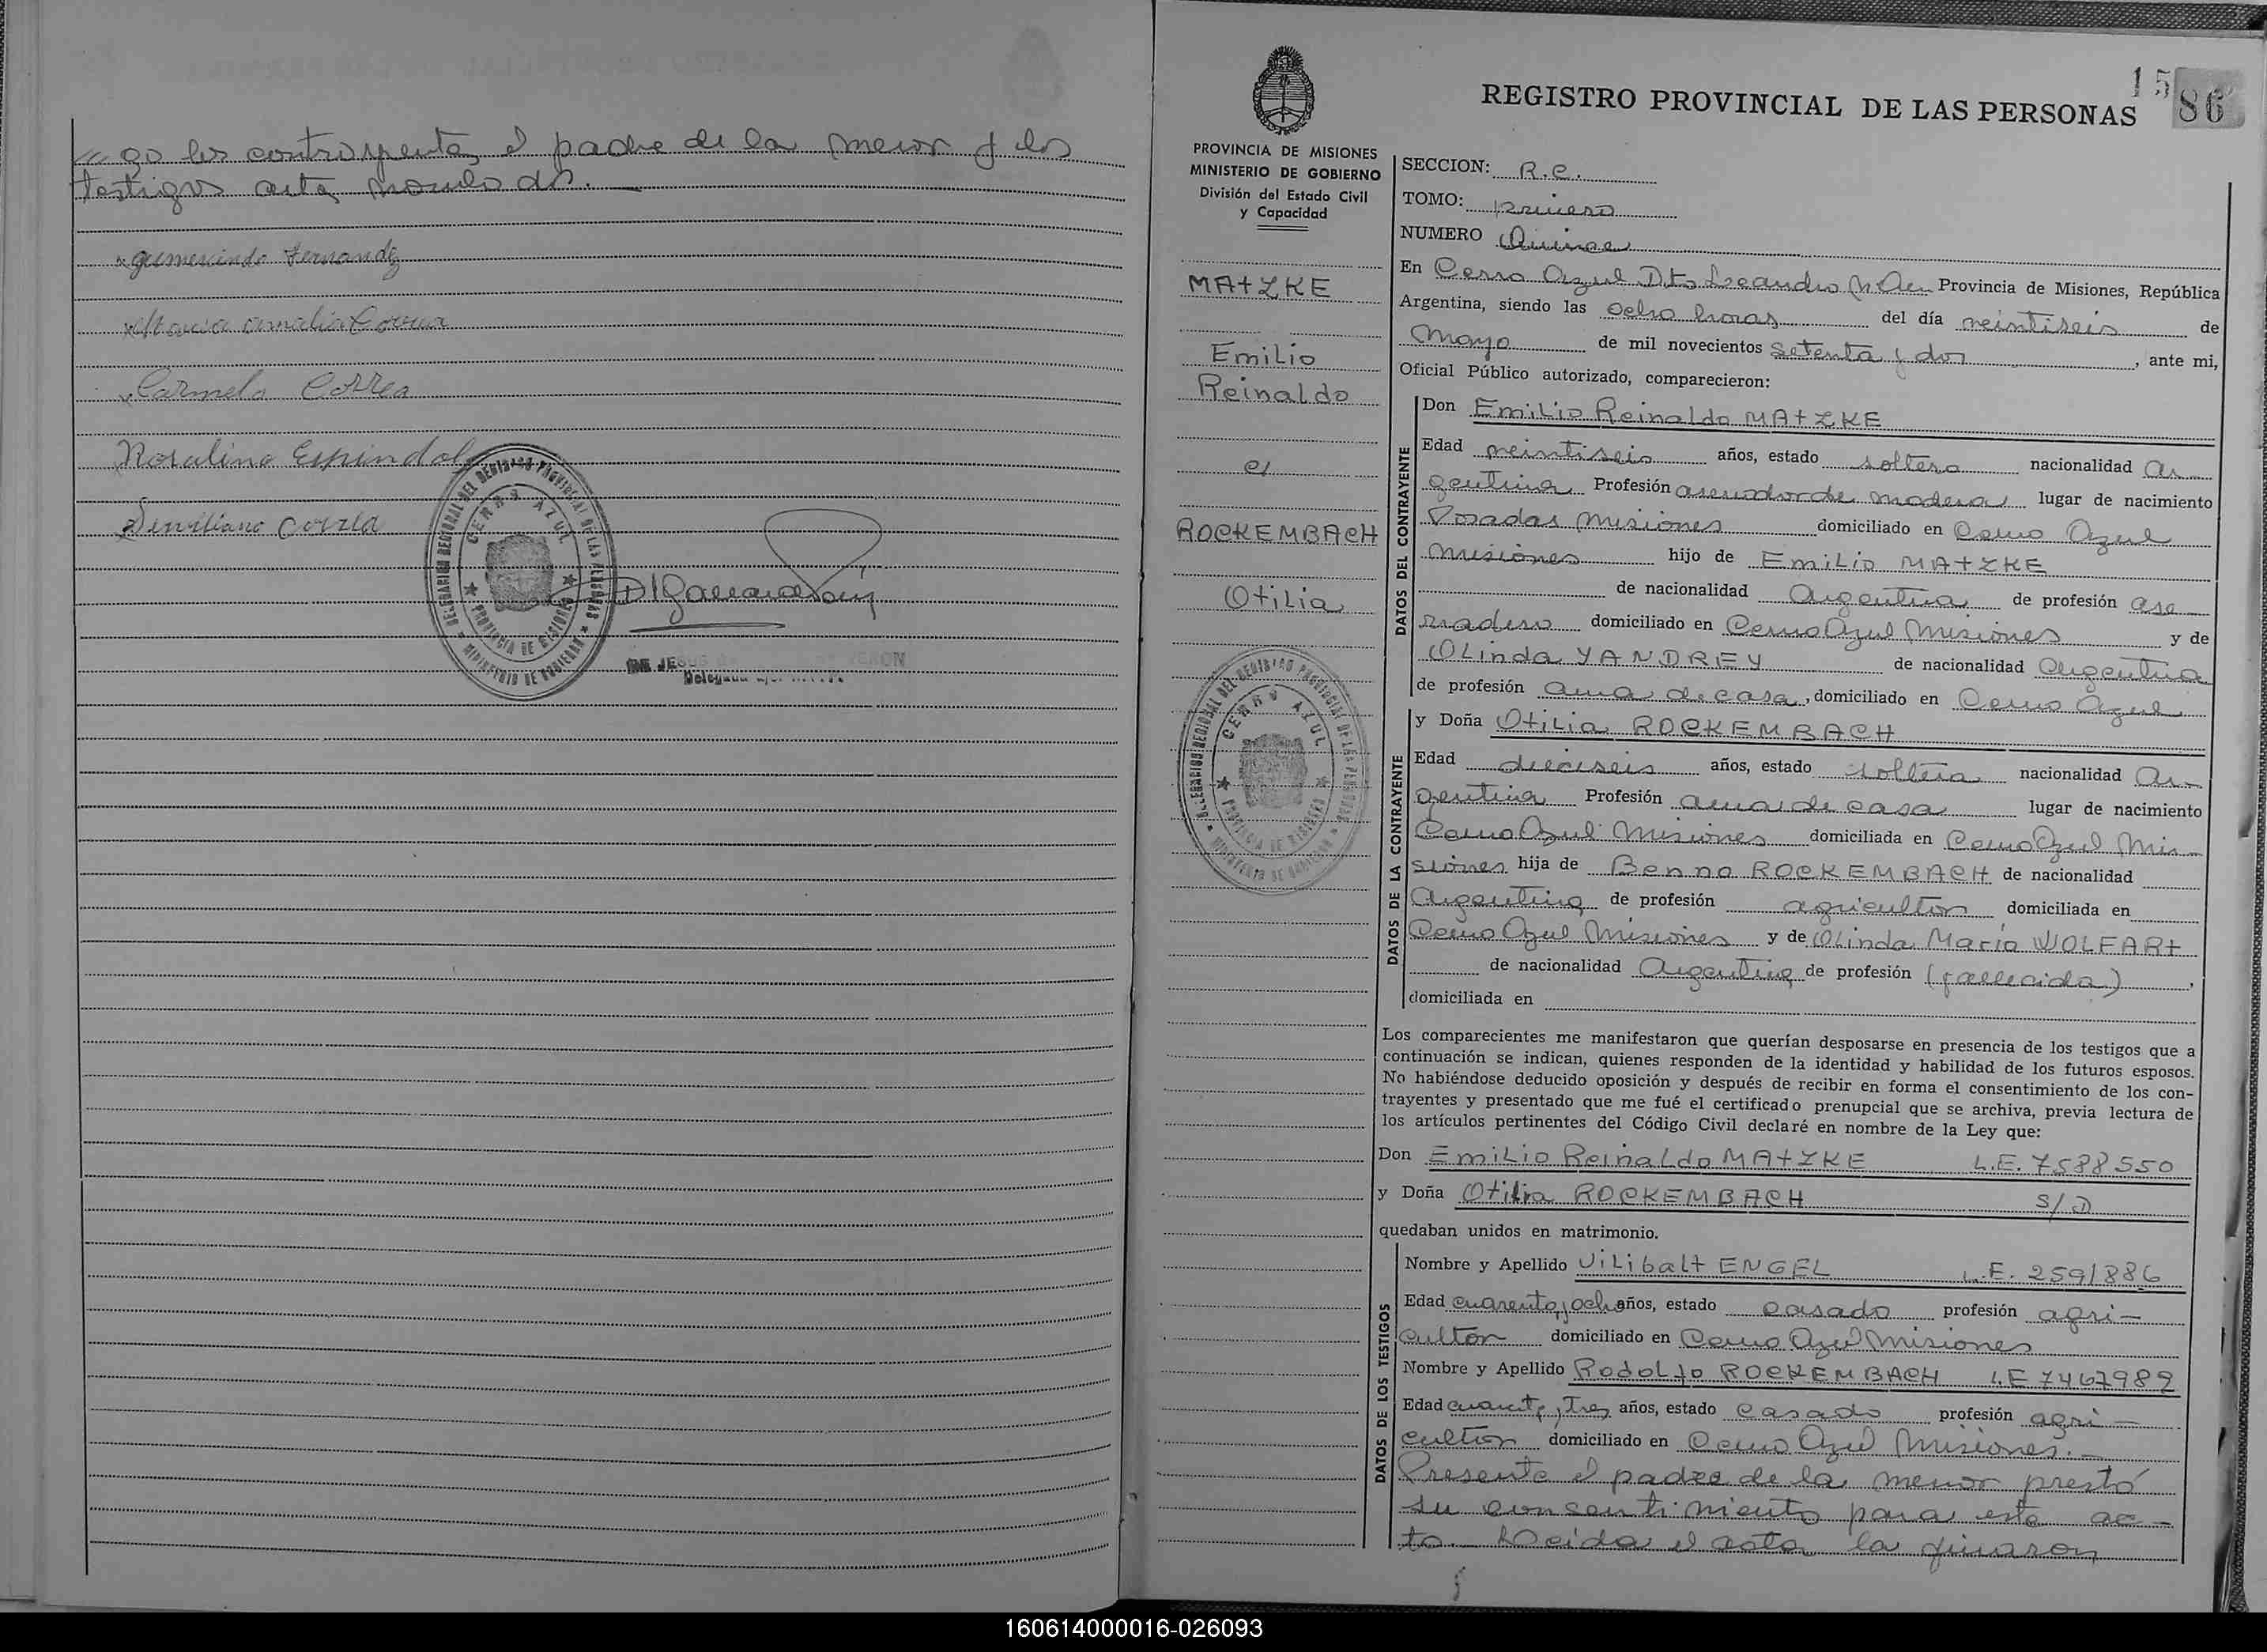 go los contrayentes, el padre de la menor y los
testigos arta nombrados.
Gumersindo Fernandez
Maria Amalia Correa
Carmelo Correa
Rosalino Espindola
Correa
DELEGACION REGIONAL DEL REGISTRO PROVINCIAL DE LAS PERSONAS
CERRO AZUL
PROVINCIA DE MISIONES
MINISTERIO DE GOBIERNO
DE JESUS
REGISTRO PROVINCIAL DE LAS PERSONAS
15
86
PROVINCIA DE MISIONES
MINISTERIO DE GOBIERNO
División del Estado Civil
y Capacidad
MATZKE
Emilio
Reinaldo
c/
ROCKEMBACH
Otilia
DELEGACION REGIONAL DEL REGISTRO PROVINCIAL DE LAS PERSONAS
CERRO AZUL
PROVINCIA DE MISIONES
MINISTERIO DE GOBIERNO
SECCION: R.C.
TOMO: primero
NUMERO Quince
En Cerro Azul Dto Leandro N. Alem Provincia de Misiones, República
Argentina, siendo las ocho horas del día veintiseis de
Mayo de mil novecientos setenta y dos, ante mi,
Oficial Público autorizado, comparecieron:
DATOS DEL CONTRAYENTE
Don Emilio Reinaldo MATZKE
Edad veintiseis años, estado soltero nacionalidad Ar-
gentina Profesión aserrador de madera lugar de nacimiento
Posadas Misiones domiciliado en Cerro Azul
Misiones hijo de Emilio MATZKE
de nacionalidad Argentina de profesión ase
rradero domiciliado en Cerro Azul Misiones y de
Olinda YANDREY de nacionalidad Argentina
de profesión ama de casa, domiciliado en Cerro Azul
DATOS DE LA CONTRAYENTE
y Doña Otilia ROCKEMBACH
Edad dieciseis años, estado soltera nacionalidad Ar-
gentina Profesión ama de casa lugar de nacimiento
Cerro Azul Misiones domiciliada en Cerro Azul Mi-
siones hija de Benno ROCKEMBACH de nacionalidad
Argentina de profesión agricultor domiciliada en
Cerro Azul Misiones y de Olinda María WOLFART
de nacionalidad Argentina de profesión (fallecida),
domiciliada en
Los comparecientes me manifestaron que querían desposarse en presencia de los testigos que a
continuación se indican, quienes responden de la identidad y habilidad de los futuros esposos.
No habiéndose deducido oposición y después de recibir en forma el consentimiento de los con-
trayentes y presentado que me fué el certificado prenupcial que se archiva, previa lectura de
los artículos pertinentes del Código Civil declaré en nombre de la Ley que:
Don Emilio Reinaldo MATZKE L.E. 7588550
y Doña Otilia ROCKEMBACH S/D
quedaban unidos en matrimonio.
DATOS DE LOS TESTIGOS
Nombre y Apellido Vilibalt ENGEL L.E. 2591886
Edad cuarenta y ocho años, estado casado profesión agri-
cultor domiciliado en Cerro Azul Misiones
Nombre y Apellido Rodolfo ROCKEMBACH L.E 7467982
Edad cuarenta y tres años, estado casado profesión agri-
cultor domiciliado en Cerro Azul Misiones.-
Presente el padre de la menor prestó
su consentimiento para este ac-
to. Leida el acta la firmaron
160614000016-026093